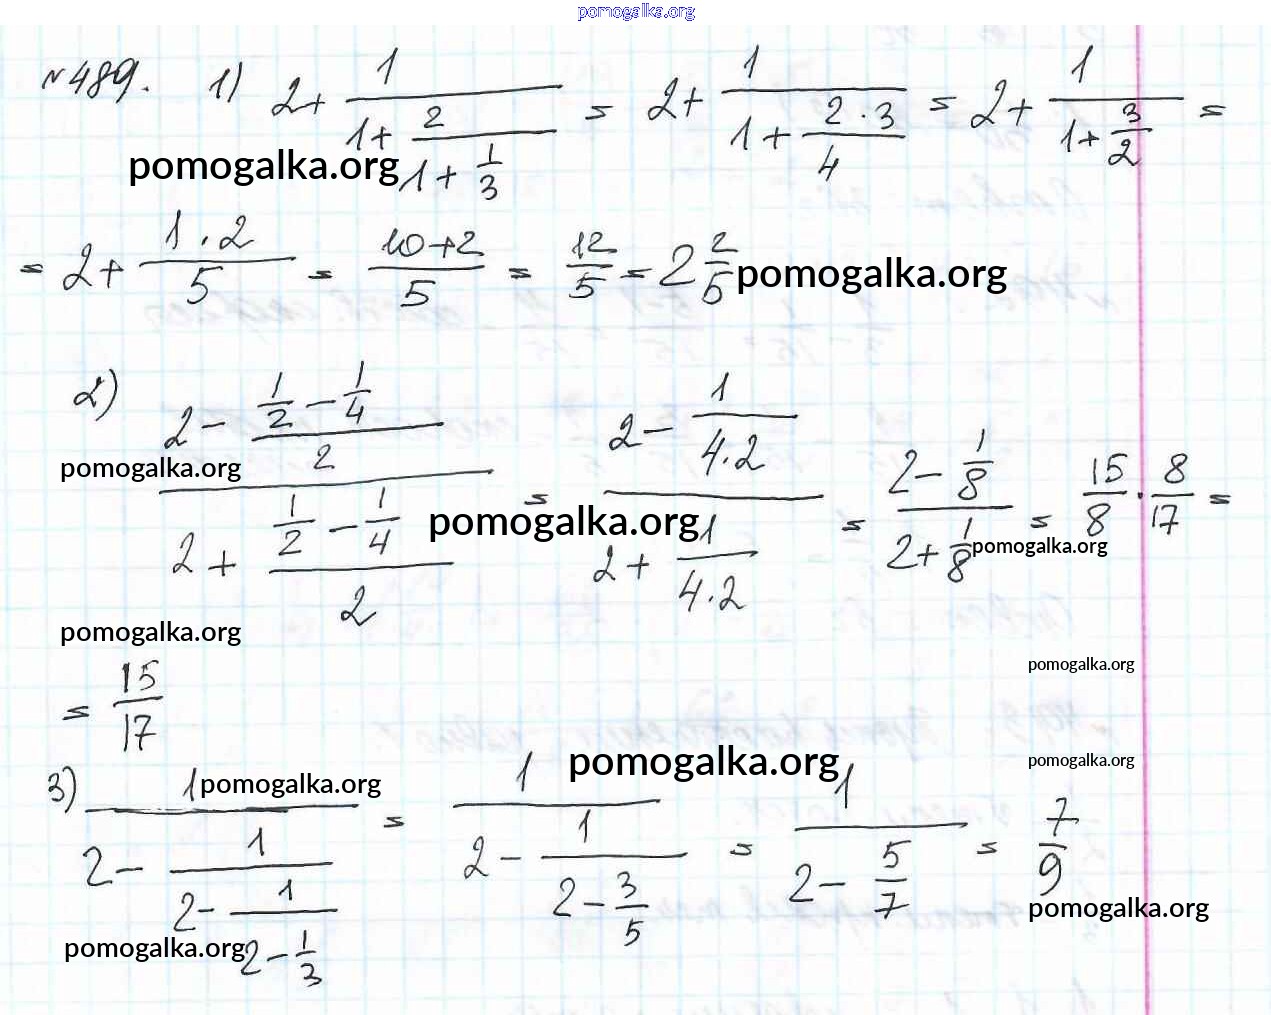 pomogalka.org
№489. 1) 2+1/(1+2/(1+1/3)) = 2+1/(1+2·3/4) = 2+1/(1+3/2) =
pomogalka.org
= 2+1·2/5 = 10+2/5 = 12/5 = 2 2/5 pomogalka.org
2) (2-(1/2-1/4)/2)/(2+(1/2-1/4)/2) = (2-1/(4·2))/(2+1/(4·2)) = (2-1/8)/(2+1/8) = 15/8·8/17 =
pomogalka.org
pomogalka.org
pomogalka.org
pomogalka.org
= 15/17
pomogalka.org
pomogalka.org
pomogalka.org
3) 1/(2-1/(2-1/(2-1/3))) = 1/(2-1/(2-3/5)) = 1/(2-5/7) = 7/9
pomogalka.org
pomogalka.org
pomogalka.org